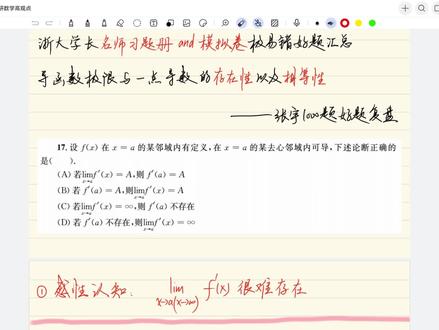 研数学高观点
浙大学长名师习题册 and 模拟卷极易错好题汇总
导函数极限与一点导数的存在性以及相等性
——张宇1000题好题复盘
17. 设 f(x) 在 x = a 的某邻域内有定义,在 x = a 的某去心邻域内可导,下述论断正确的
是( ).
(A) 若lim f′(x) = A,则 f′(a) = A
x→a
(B) 若 f′(a) = A,则lim f′(x) = A
x→a
(C) 若lim f′(x) = ∞,则 f′(a) 不存在
x→a
(D) 若 f′(a) 不存在,则lim f′(x) = ∞
x→a
① 感性认知: lim f′(x) 很难存在
x→a(x→∞)